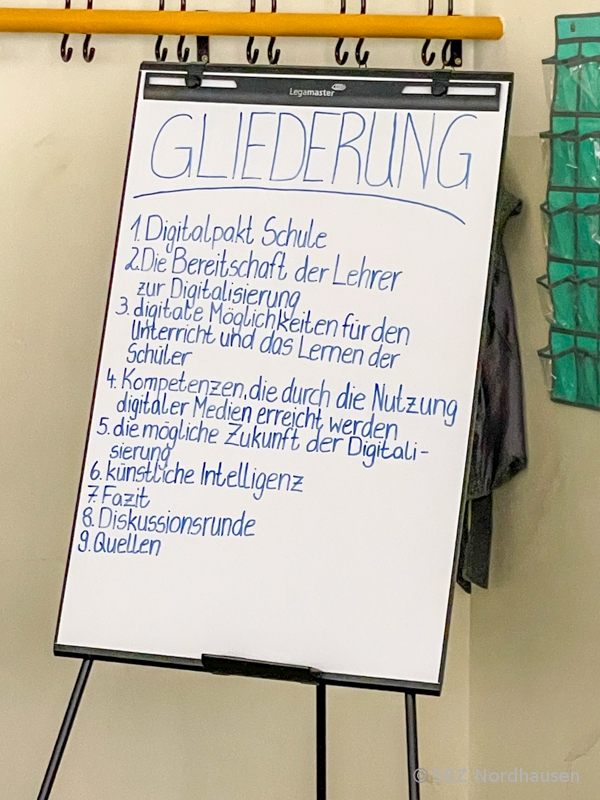 Legamaster
GLIEDERUNG
1. Digitalpakt Schule
2. Die Bereitschaft der Lehrer
zur Digitalisierung
3. digitale Möglichkeiten für den
Unterricht und das Lernen der
Schüler
4. Kompetenzen, die durch die Nutzung
digitaler Medien erreicht werden
5. die mögliche Zukunft der Digitali-
sierung
6. künstliche Intelligenz
7. Fazit
8. Diskussionsrunde
9. Quellen
Nordhausen